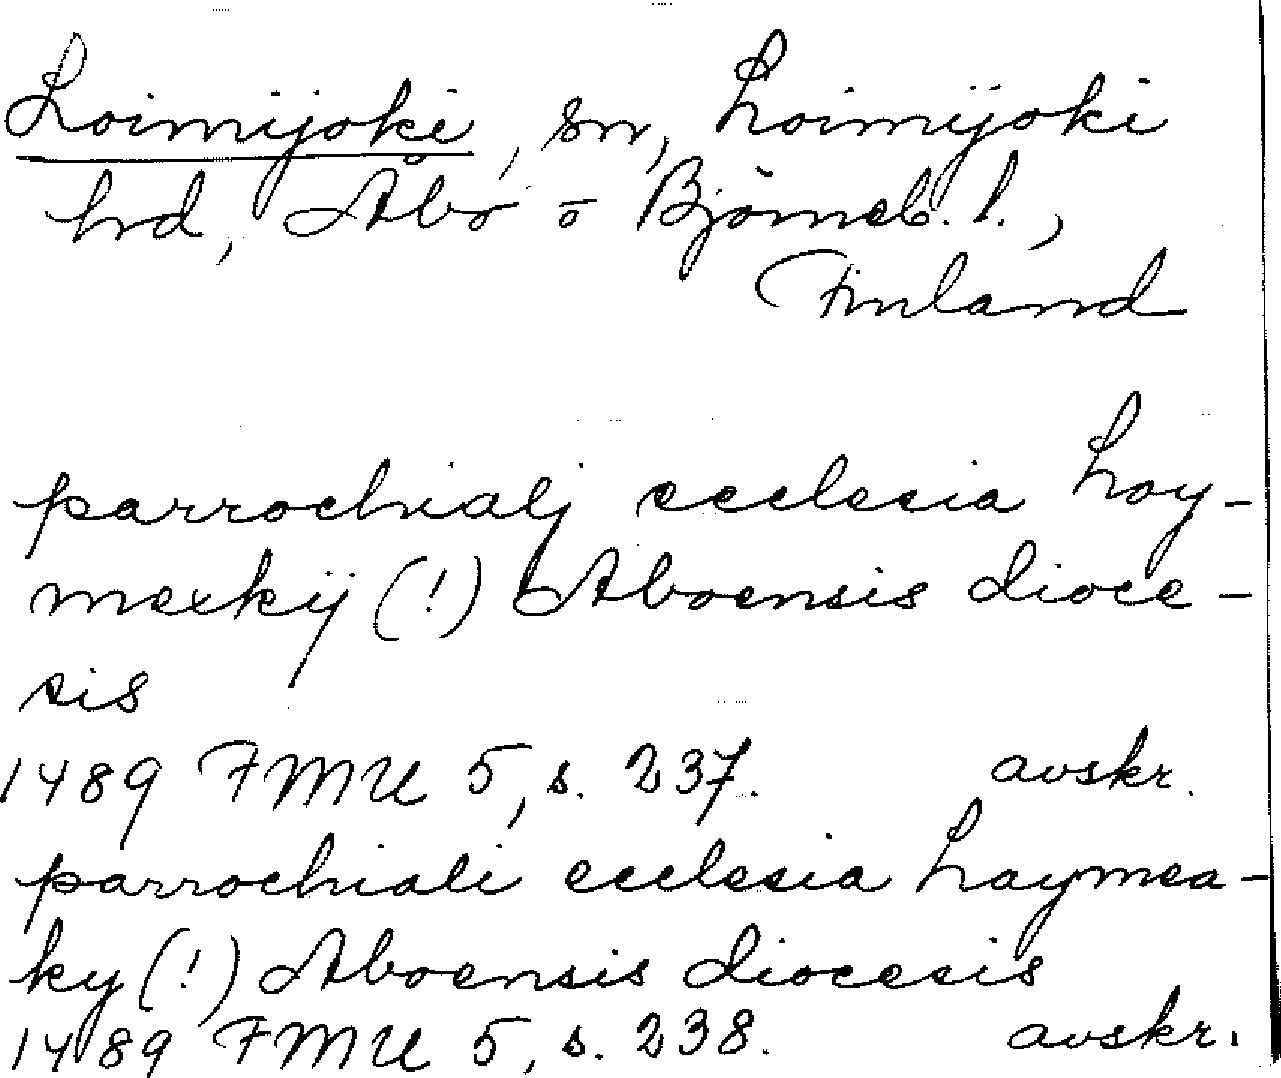 Loimijoki, sn, Loimijoki
hrd, Åbo o Björneb. l.,
Finland
parrochialj ecclesia Loy-
mexkij (!) Aboensis dioce-
sis
1489 FMU 5, s. 237. avskr.
parrochiali ecclesia Laymea-
ky (!) Aboensis diocesis
1489 FMU 5, s. 238. avskr.